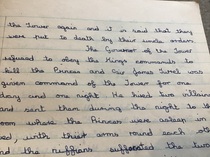 the Tower again and it is said that they
were put to death by their uncle orders
The Governor of the Tower
refused to obey the Kings commands to
kill the Princes and Sir James Tirrel was
given comand of the Tower for one
day and one night He hired two villians
and sent them during the night to the
room where the Princes were asleep in
bed with their arms round each oth
and the ruffians suffocated the two